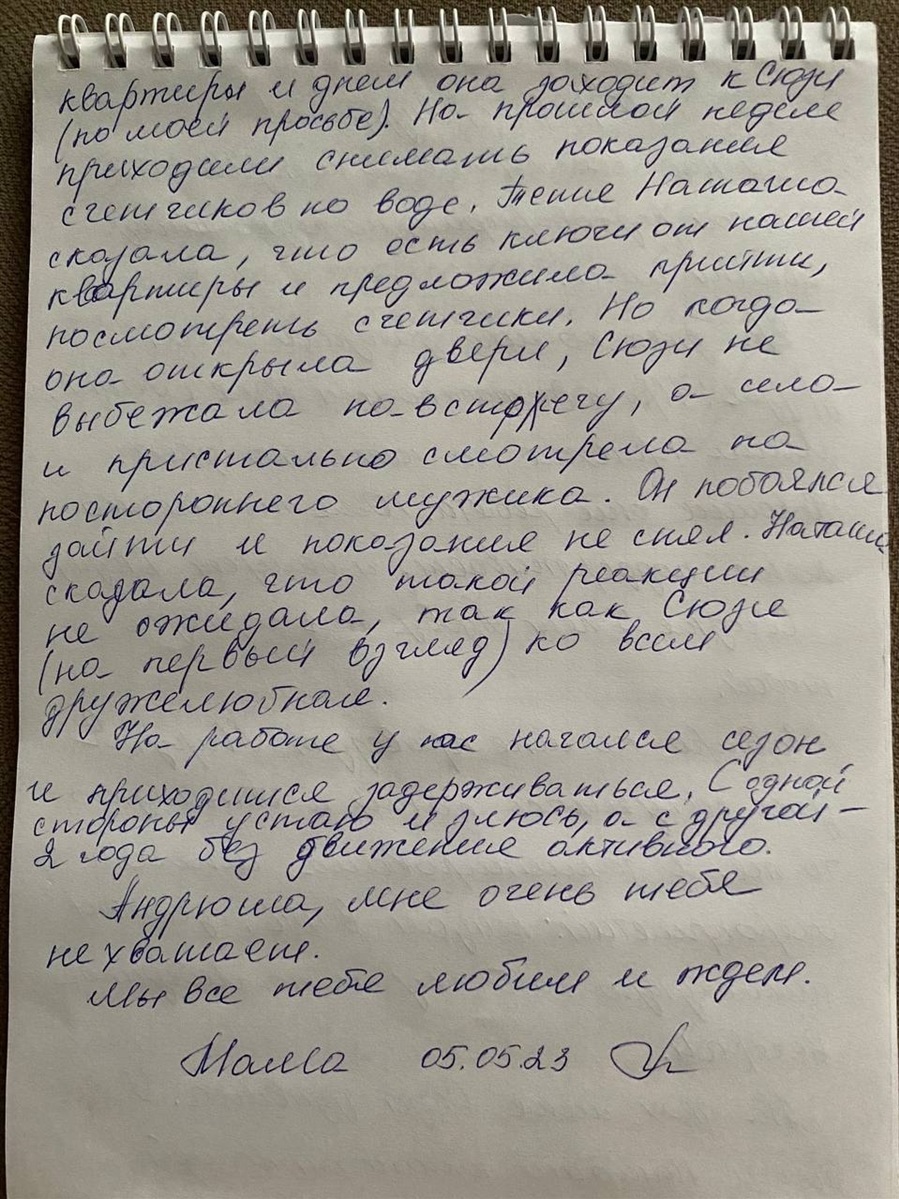 квартиры и днем она заходит к Сюзи
(по моей просьбе). На прошлой неделе
приходили снимать показания
счетчиков по воде. Тетя Наташа
сказала, что есть ключи от нашей
квартиры и предложила прийти,
посмотреть счетчики. Но когда
она открыла двери, Сюзи не
выбежала на встречу, а села
и пристально смотрела на
постороннего мужика. Он побоялся
зайти и показания не снял. Наташа
сказала, что такой реакции
не ожидала, так как Сюзи
(на первый взгляд) ко всем
дружелюбная.
На работе у нас начался сезон
и приходится задерживаться. С одной
стороны устаю и злюсь, а с другой –
2 года без движения активного.
Андрюша, мне очень тебя
не хватает.
Мы все тебя любим и ждем.
Мама 05.05.23